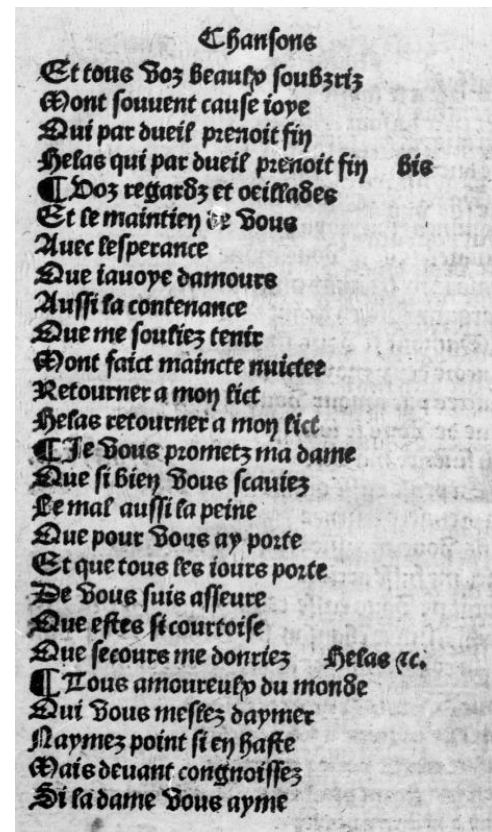 Chansons
Et tous voz beaulx soubzriz
Mont souvent cause ioye
Qui par dueil prenoit fin
Helas qui par dueil prenoit fin bis
¶Voz regardz et oeillades
Et le maintien de vous
Avec lesperance
Que iavoye damours
Aussi la contenance
Que me souliez tenir
Mont faict maincte nuictee
Retourner a mon lict
Helas retourner a mon lict
¶Je vous prometz ma dame
Que si bien vous scaviez
Le mal aussi la peine
Que pour vous ay porte
Et que tous les iours porte
De vous suis asseure
Que estes si courtoise
Que secours me donriez Helas &c.
¶Tous amoureulx du monde
Qui vous meslez daymer
Naymez point si en haste
Mais devant congnoissez
Si la dame vous ayme